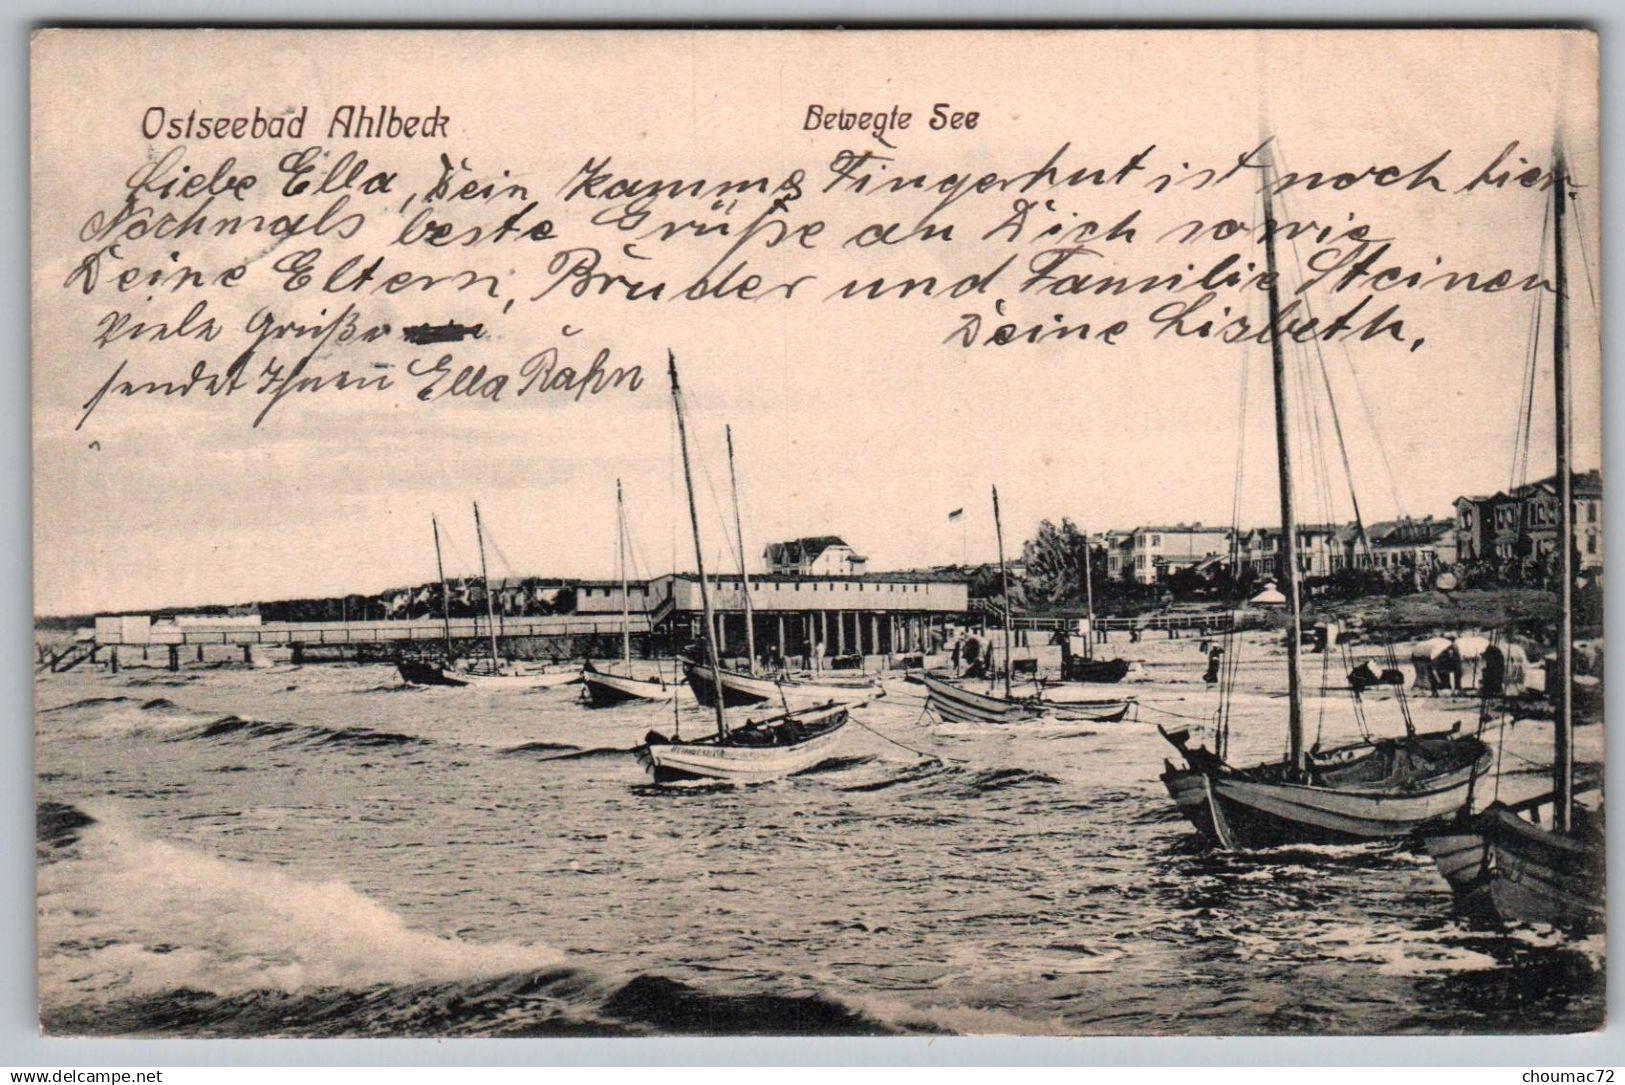 Ostseebad Ahlbeck
Bewegte See
Liebe Ella, Dein Kamm & Fingerhut ist noch hier.
Nochmals beste Grüße an Dich sowie
Deine Eltern, Bruder und Familie Steinen
Deine Lisbeth.
Viele Grüße
sendet Ihnen Ella Rahn
choumac72